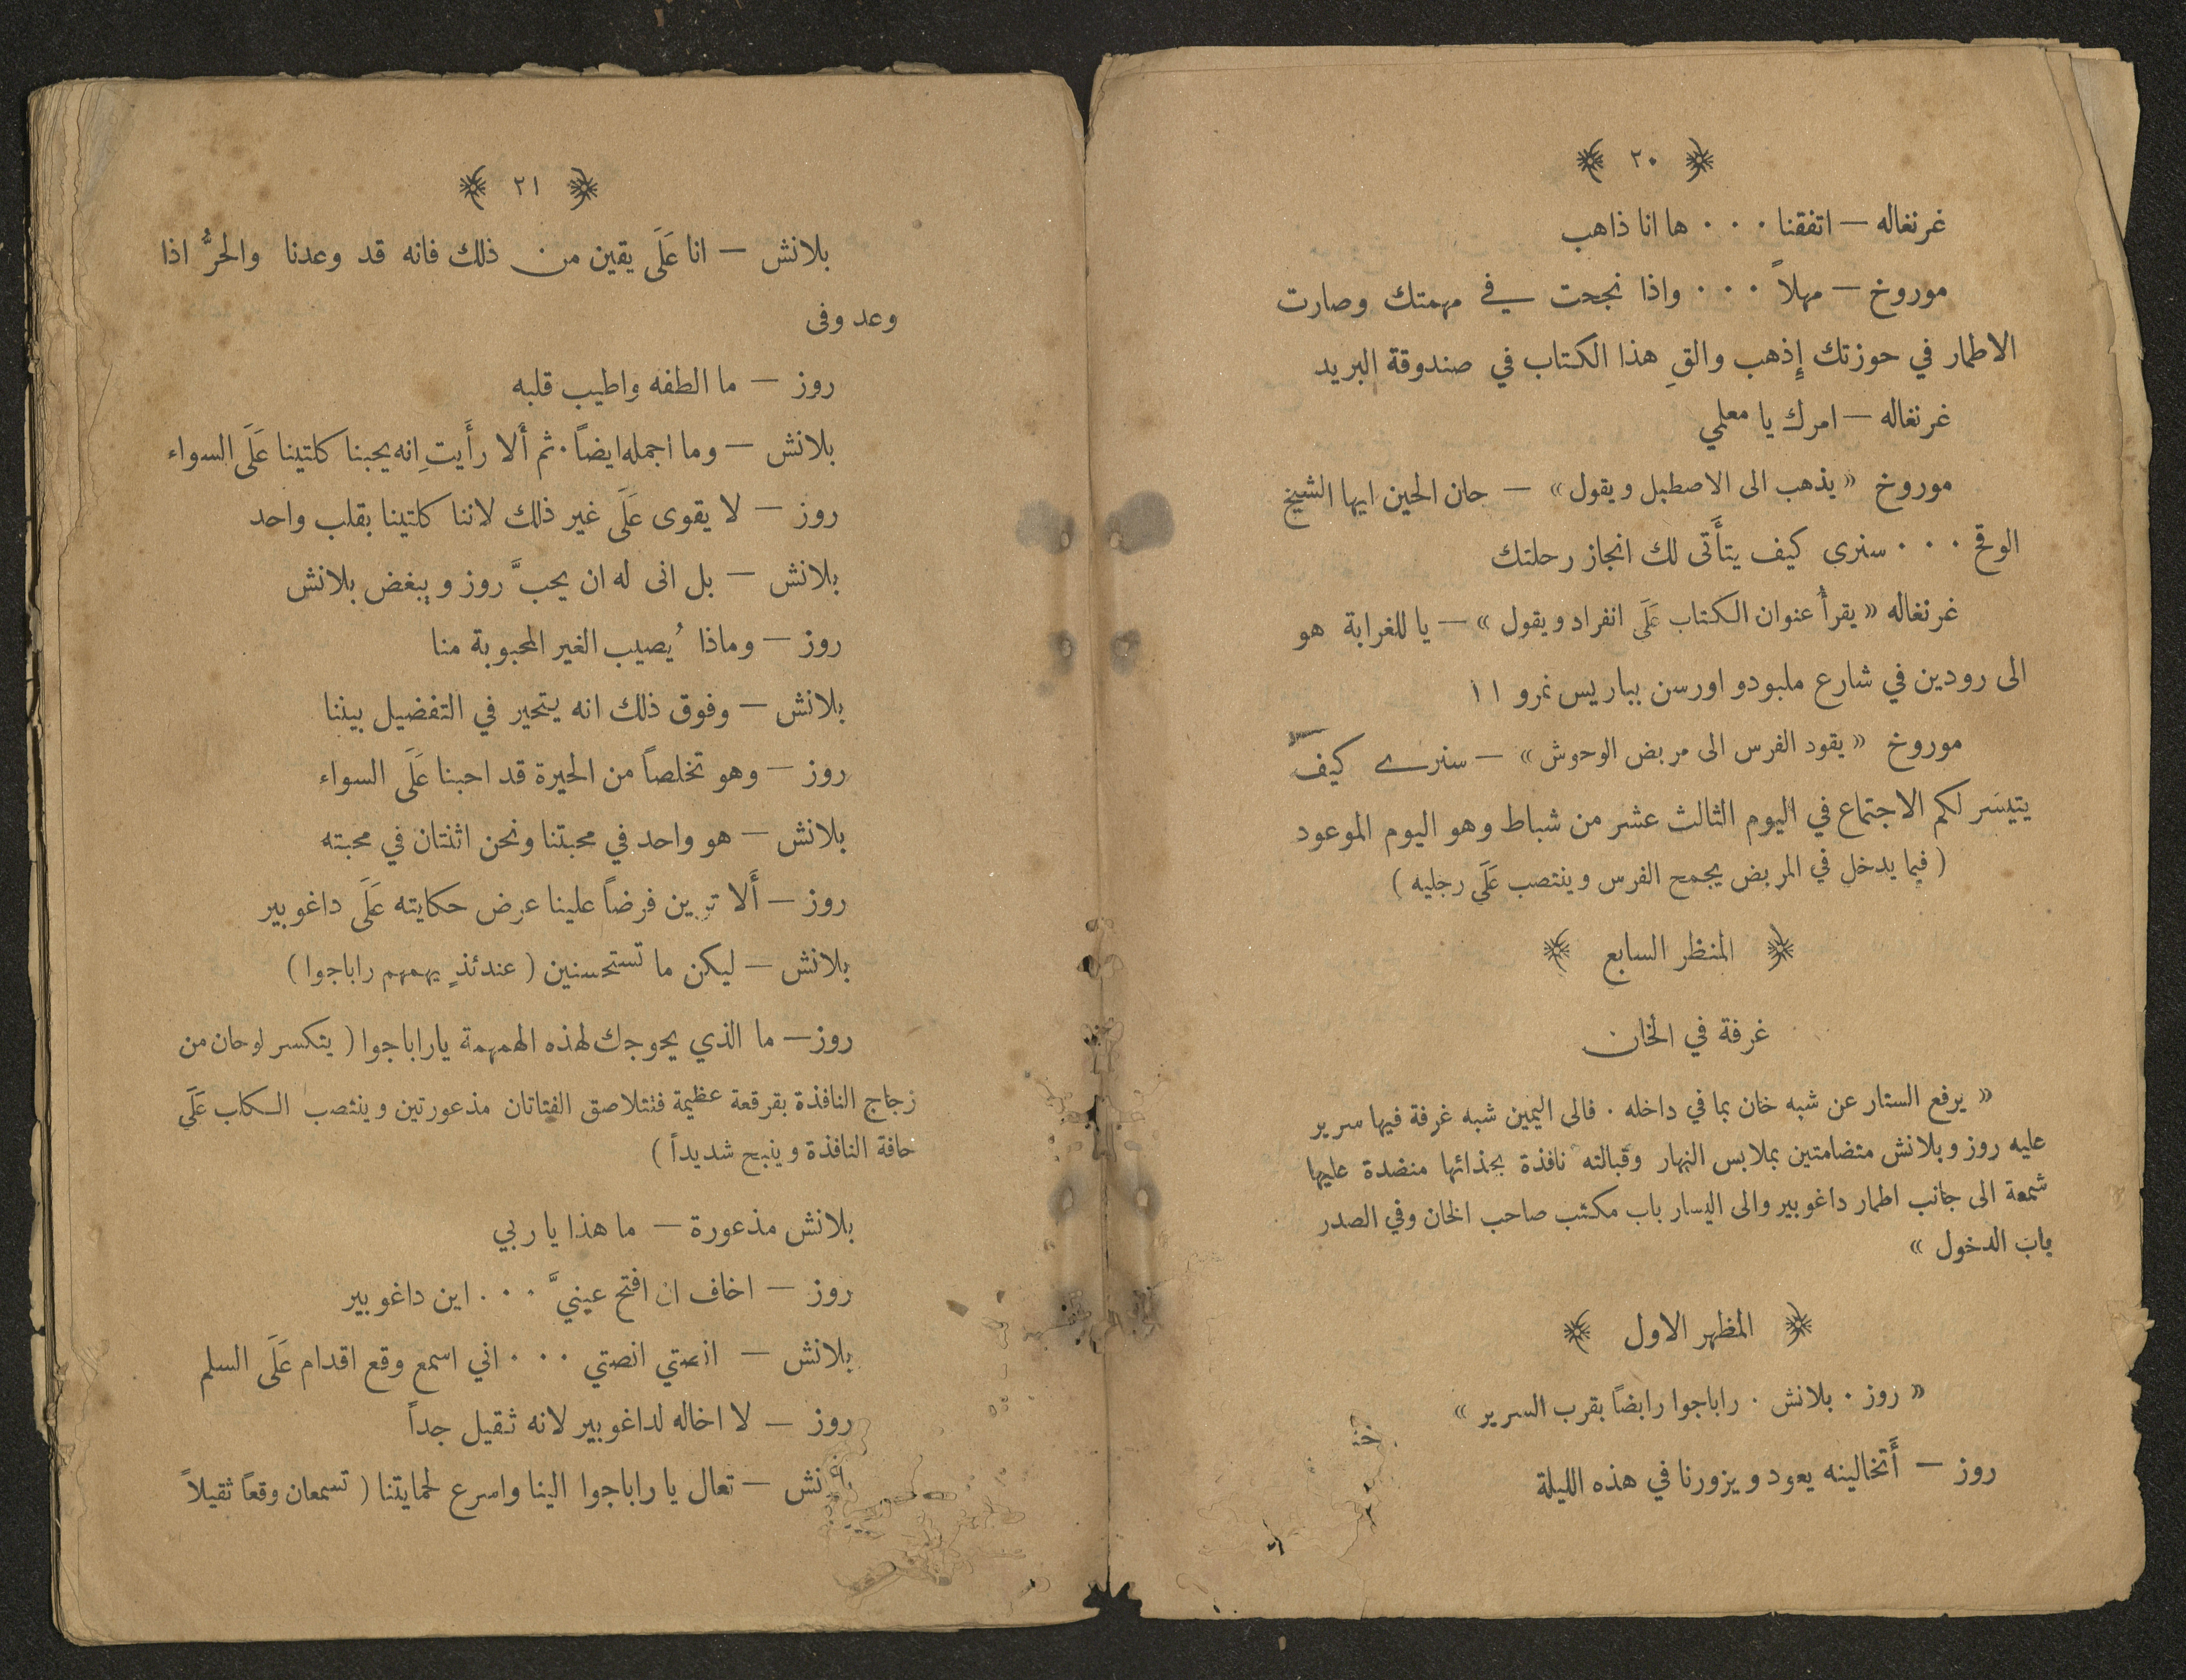 ٢٠
غرنغاله — اتفقنا . . . ها انا ذاهب
موروخ — مهلاً . . . واذا نجحت في مهمتك وصارت
الاطمار في حوزتك إِذهب والقِ هذا الكتاب في صندوقة البريد
غرنغاله — امرك يا معلمي
موروخ « يذهب الى الاصطبل ويقول » — حان الحين ايها الشيخ
الوقح . . . سنرى كيف يتأَتى لك انجاز رحلتك
غرنغاله « يقرأُ عنوان الكتاب عَلَى انفراد ويقول » — يا للغرابة هو
الى رودين في شارع ملبودو اورسن بباريس نمرو ١١
موروخ « يقود الفرس الى مربض الوحوش » — سنرى كيف
يتيسر لكم الاجتماع في اليوم الثالث عشر من شباط وهو اليوم الموعود
( فيما يدخل في المربض يجمح الفرس وينتصب عَلَى رجليه )
المنظر السابع
غرفة في الخان
« يرفع الستار عن شبه خان بما في داخله . فالى اليمين شبه غرفة فيها سرير
عليه روز وبلانش متضامتين بملابس النهار وقبالته نافذة بحذائها منضدة عليها
شمعة الى جانب اطمار داغوبير والى اليسار باب مكتب صاحب الخان وفي الصدر
باب الدخول »
المظهر الاول
« روز . بلانش . راباجوا رابضاً بقرب السرير »
روز — أَتخالينه يعود ويزورنا في هذه الليلة
٢١
بلانش — انا عَلَى يقين من ذلك فانه قد وعدنا والحرُّ اذا
وعد وفى
روز — ما الطفه واطيب قلبه
بلانش — وما اجمله ايضاً . ثم أَلا رأَيتِ انه يحبنا كلتينا عَلَى السواء
روز — لا يقوى عَلَى غير ذلك لاننا كلتينا بقلب واحد
بلانش — بل انى له ان يحبَّ روز ويبغض بلانش
روز — وماذا يُصيب الغير المحبوبة منا
بلانش — وفوق ذلك انه يتحير في التفضيل بيننا
روز — وهو تخلصاً من الحيرة قد احبنا عَلَى السواء
بلانش — هو واحد في محبتنا ونحن اثنتان في محبته
روز — أَلا ترين فرضاً علينا عرض حكايته عَلَى داغوبير
بلانش — ليكن ما تستحسنين ( عندئذٍ يهمهم راباجوا )
روز — ما الذي يحوجك لهذه الهمهمة ياراباجوا ( يتكسر لوحان من
زجاج النافذة بقرقعة عظيمة فتتلاصق الفتاتان مذعورتين وينتصب الكلب عَلَى
حافة النافذة وينبح شديداً )
بلانش مذعورة — ما هذا يا ربي
روز — اخاف ان افتح عينيَّ . . . اين داغوبير
بلانش — انصتي انصتي . . . اني اسمع وقع اقدام عَلَى السلم
روز — لا اخاله لداغوبير لانه ثقيل جداً
بلانش — تعال يا راباجوا الينا واسرع لحمايتنا ( تسمعان وقعاً ثقيلاً